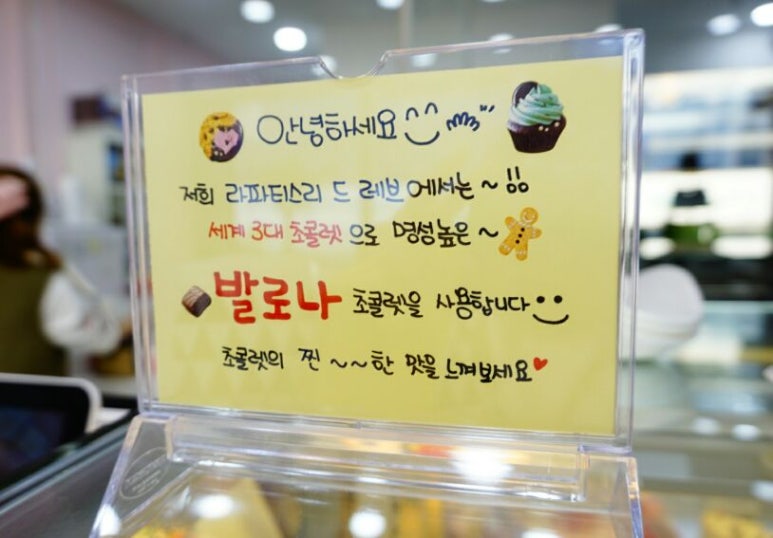 안녕하세요
저희 라파티스리 드 레브에서는~!!
세계 3대 초콜렛으로 명성높은~
발로나 초콜렛을 사용합니다
초콜렛의 찐~~한 맛을 느껴보세요♥